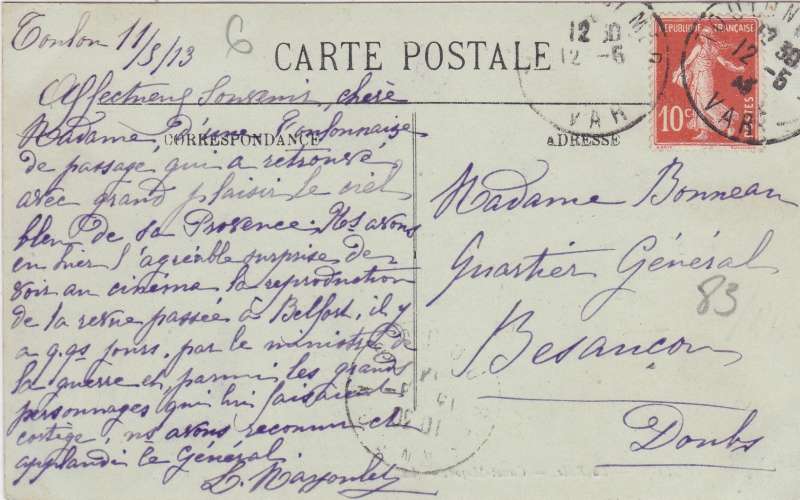 Toulon 11/5/13
6
CARTE POSTALE
Affectueux Souvenir, chère
Madame, d'une Toulonnaise
CORRESPONDANCE
de passage, qui a retrouvé
avec grand plaisir le ciel
bleu de sa Provence. Ns avons
eu hier l'agréable surprise de
voir au cinéma la reproduction
de la revue passée à Belfort, il y
a q.qs jours, par le ministre de
la guerre et, parmi les grands
personnages qui lui faisaient
cortège, ns avons reconnu et
applaudi le Général.
ADRESSE
Madame Bonneau
Quartier Général
83
Besançon
Doubs
RÉPUBLIQUE FRANÇAISE
10c
POSTES
12 30
12 -5
VAR
12 30
12 -5
VAR